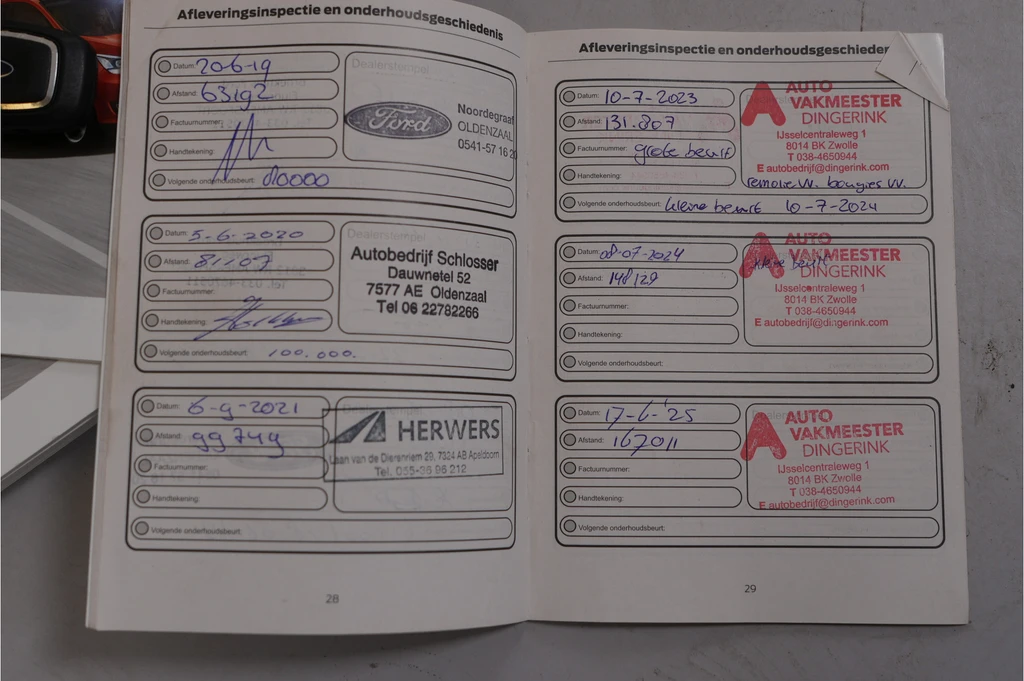 Afleveringsinspectie en onderhoudsgeschiedenis
Datum: 20-6-19
Afstand: 63192
Factuurnummer:
Handtekening:
Volgende onderhoudsbeurt: 80000
Dealerstempel
Ford
Noordegraaf
OLDENZAAL
0541-57 16 20
Datum: 5-6-2020
Afstand:
Factuurnummer:
Handtekening:
Volgende onderhoudsbeurt: 100.000.
Dealerstempel
Autobedrijf Schlosser
Dauwnetel 52
7577 AE Oldenzaal
Tel 06 22782266
Datum: 6-9-2021
Afstand: 99749
Factuurnummer:
Handtekening:
Volgende onderhoudsbeurt:
HERWERS
Laan van de Dierenriem 29, 7324 AB Apeldoorn
Tel. 055-36 96 212
28
Afleveringsinspectie en onderhoudsgeschieder
Datum: 10-7-2023
Afstand: 131.807
Factuurnummer: grote beurt
Handtekening:
Volgende onderhoudsbeurt: kleine beurt 10-7-2024
AUTO
VAKMEESTER
DINGERINK
IJsselcentraleweg 1
8014 BK Zwolle
T 038-4650944
E autobedrijf@dingerink.com
remolie vv. bougies vv.
Datum: 08-07-2024
Afstand: 148129
Factuurnummer:
Handtekening:
Volgende onderhoudsbeurt:
AUTO
VAKMEESTER
DINGERINK
kleine beurt
IJsselcentraleweg 1
8014 BK Zwolle
T 038-4650944
E autobedrijf@dingerink.com
Datum: 17-6-'25
Afstand: 167011
Factuurnummer:
Handtekening:
Volgende onderhoudsbeurt:
AUTO
VAKMEESTER
DINGERINK
IJsselcentraleweg 1
8014 BK Zwolle
T 038-4650944
E autobedrijf@dingerink.com
29